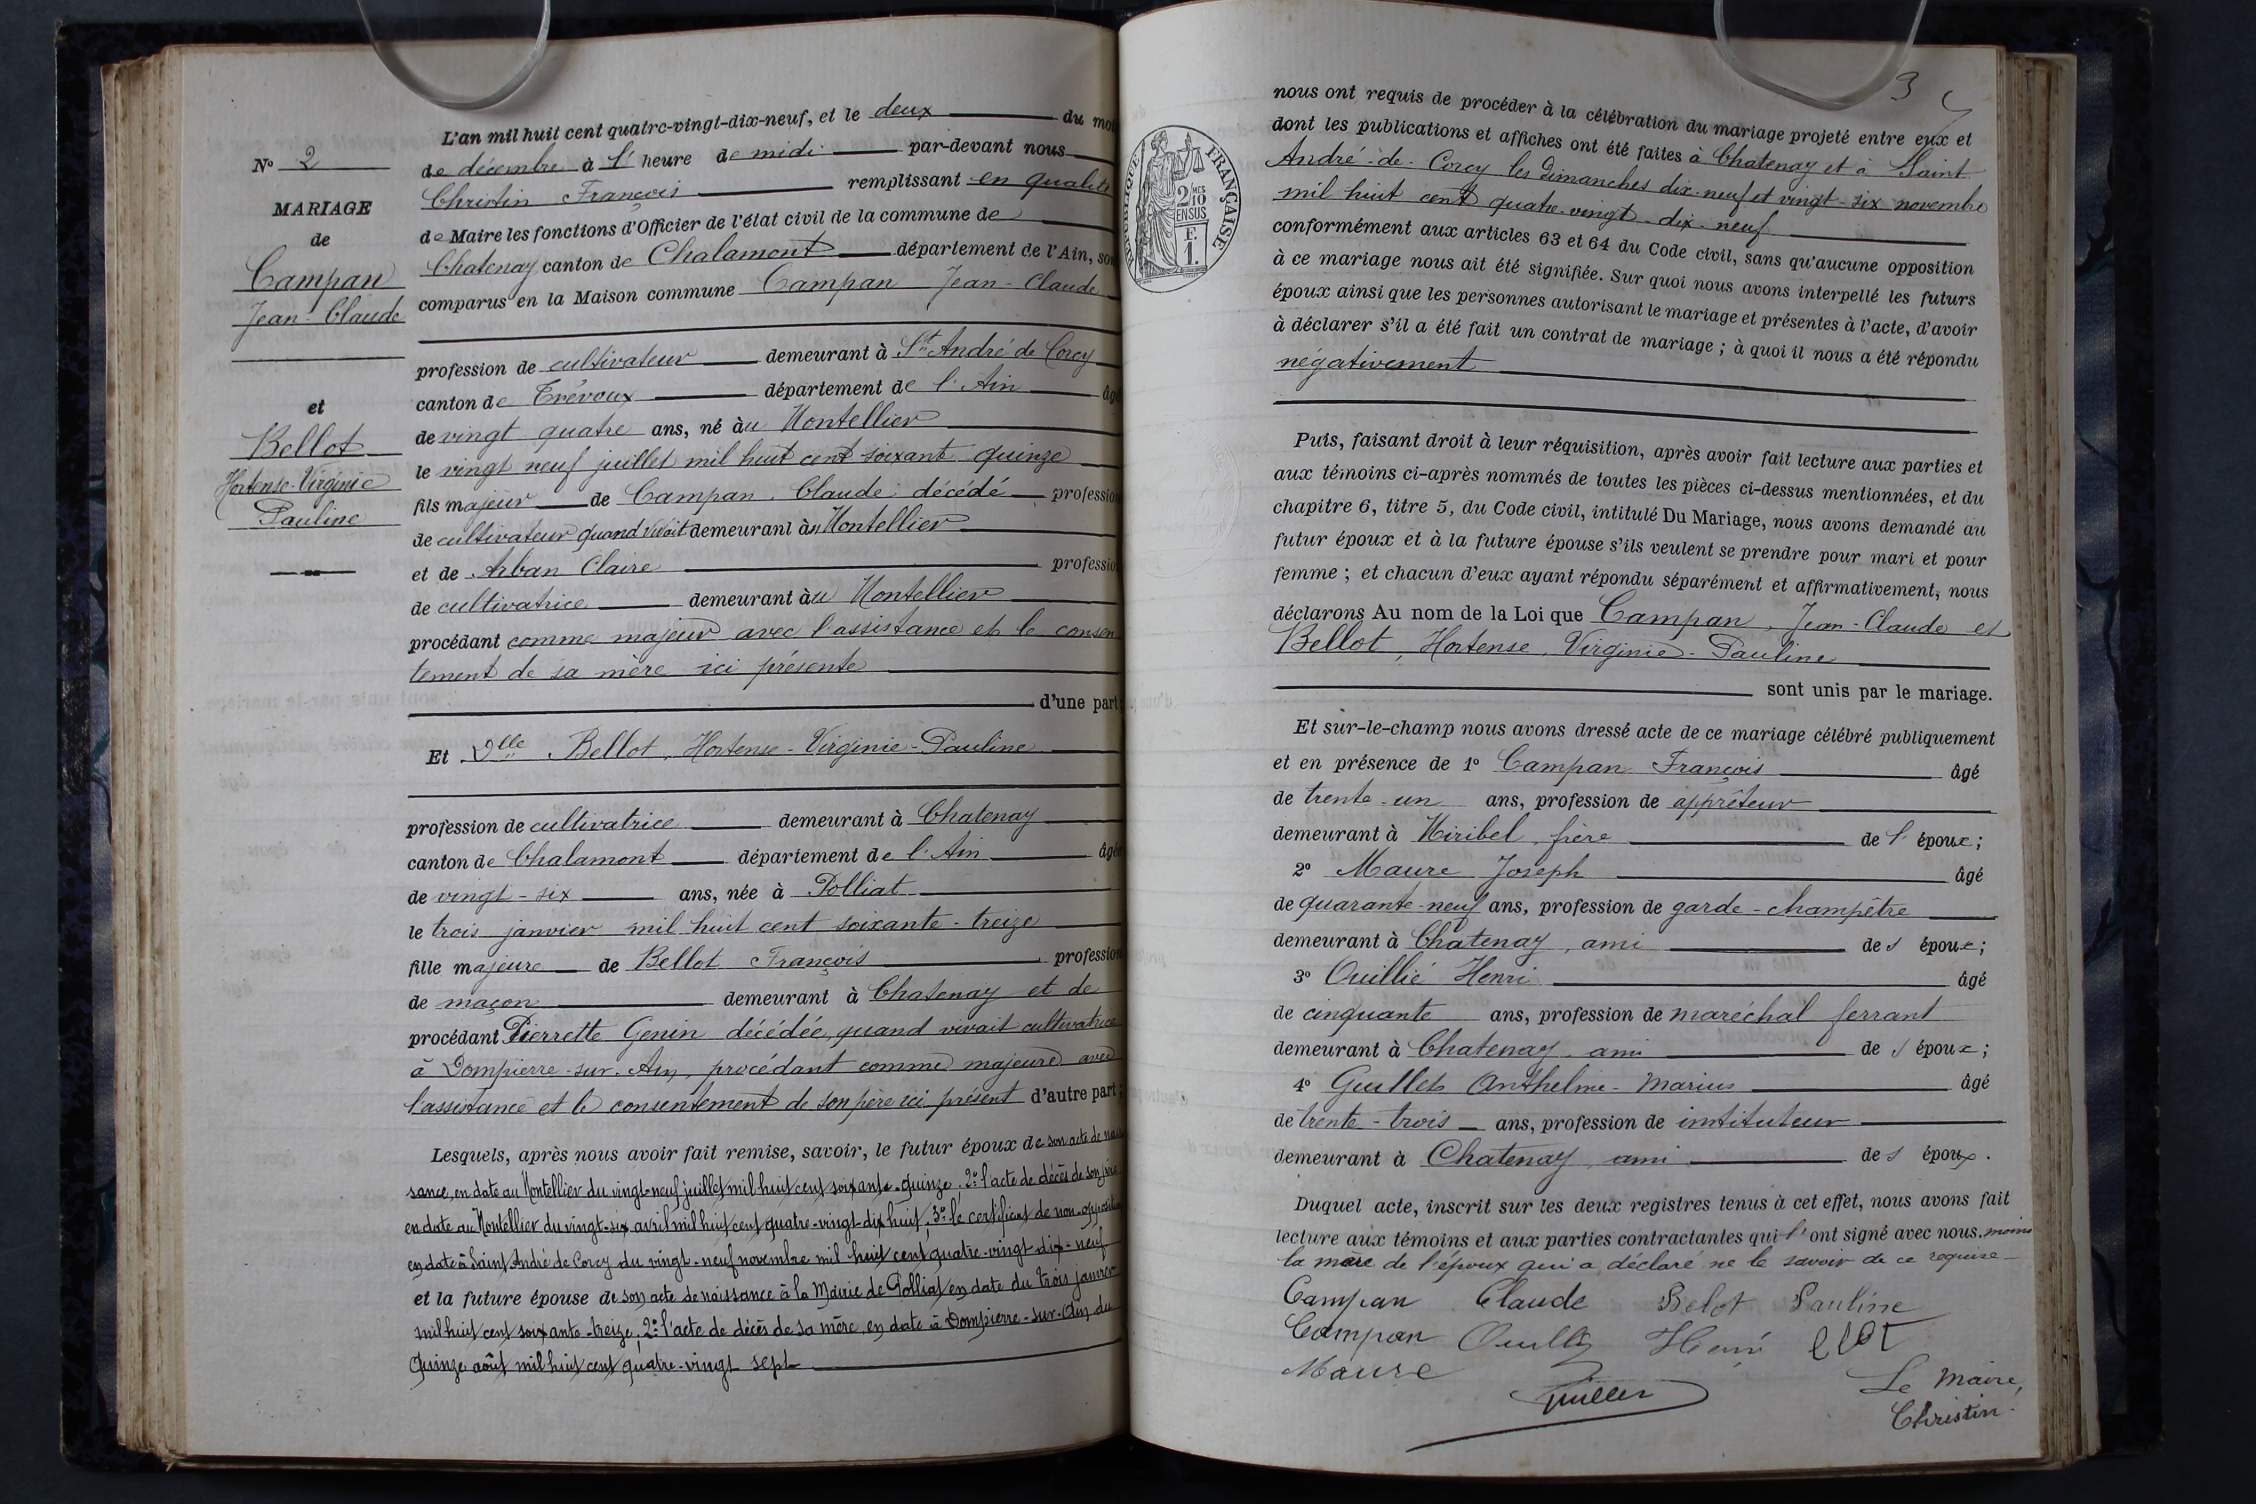 N° 2
MARIAGE
de
Campan
Jean-Claude
et
Bellot
Hortense-Virginie
Pauline
L'an mil huit cent quatre-vingt-dix-neuf, et le deux du moi
de décembre à l' heure de midi par-devant nous
Christin François remplissant en qualité
de Maire les fonctions d'Officier de l'état civil de la commune de
Chatenay canton de Chalamont département de l'Ain, son
comparus en la Maison commune Campan Jean-Claude
profession de cultivateur demeurant à St André de Corcy
canton de Trévoux département de l'Ain âgé
de vingt quatre ans, né au Montellier
le vingt neuf juillet mil huit cent soixante quinze
fils majeur de Campan Claude décédé profession
de cultivateur quand vivait demeurant au Montellier
et de Arban Claire profession
de cultivatrice demeurant au Montellier
procédant comme majeur avec l'assistance et le consen
tement de sa mère ici présente
d'une part
Et Dlle Bellot, Hortense-Virginie-Pauline
profession de cultivatrice demeurant à Chatenay
canton de Chalamont département de l'Ain âgée
de vingt-six ans, née à Polliat
le trois janvier mil huit cent soixante-treize
fille majeure de Bellot François profession
de maçon demeurant à Chatenay et de
procédant Pierrette Genin décédée, quand vivait cultivatrice
à Dompierre-sur-Ain, procédant comme majeure avec
l'assistance et le consentement de son père ici présent d'autre part;
Lesquels, après nous avoir fait remise, savoir, le futur époux de son acte de nais
sance, en date au Montellier du vingt-neuf juillet mil huit cent soixante-quinze. 2° l'acte de décès de son père
en date au Montellier du vingt-six avril mil huit cent quatre-vingt-dix huit; 3° le certificat de non-opposition
en date à Saint André de Corcy du vingt-neuf novembre mil huit cent quatre-vingt dix-neuf
et la future épouse de son acte de naissance à la Mairie de Polliat en date du trois janvier
mil huit cent soixante-treize; 2° l'acte de décès de sa mère, en date à Dompierre-sur-Ain du
quinze août mil huit cent quatre-vingt sept
3
RÉPUBLIQUE FRANÇAISE
2 MES
10
EN SUS
F.
1.
nous ont requis de procéder à la célébration du mariage projeté entre eux et
dont les publications et affiches ont été faites à Chatenay et à Saint
André-de-Corcy les Dimanches dix-neuf et vingt-six novembre
mil huit cent quatre-vingt-dix-neuf
conformément aux articles 63 et 64 du Code civil, sans qu'aucune opposition
à ce mariage nous ait été signifiée. Sur quoi nous avons interpellé les futurs
époux ainsi que les personnes autorisant le mariage et présentes à l'acte, d'avoir
à déclarer s'il a été fait un contrat de mariage; à quoi il nous a été répondu
négativement
Puis, faisant droit à leur réquisition, après avoir fait lecture aux parties et
aux témoins ci-après nommés de toutes les pièces ci-dessus mentionnées, et du
chapitre 6, titre 5, du Code civil, intitulé Du Mariage, nous avons demandé au
futur époux et à la future épouse s'ils veulent se prendre pour mari et pour
femme; et chacun d'eux ayant répondu séparément et affirmativement, nous
déclarons Au nom de la Loi que Campan, Jean-Claude et
Bellot, Hortense, Virginie-Pauline
sont unis par le mariage.
Et sur-le-champ nous avons dressé acte de ce mariage célébré publiquement
et en présence de 1° Campan François âgé
de trente-un ans, profession de apprêteur
demeurant à Miribel, frère de l' époux;
2° Maure Joseph âgé
de quarante-neuf ans, profession de garde-champêtre
demeurant à Chatenay, ami des époux;
3° Ouillié Henri âgé
de cinquante ans, profession de maréchal ferrant
demeurant à Chatenay, ami des époux;
4° Guillet Anthelme-Marius âgé
de trente-trois ans, profession de instituteur
demeurant à Chatenay, ami des époux.
Duquel acte, inscrit sur les deux registres tenus à cet effet, nous avons fait
lecture aux témoins et aux parties contractantes qui l'ont signé avec nous, moins
la mère de l'époux qui a déclaré ne le savoir de ce requise
Campan Claude Belot Pauline
Campan Henri
Maure Guillet
Le Maire,
Christin.